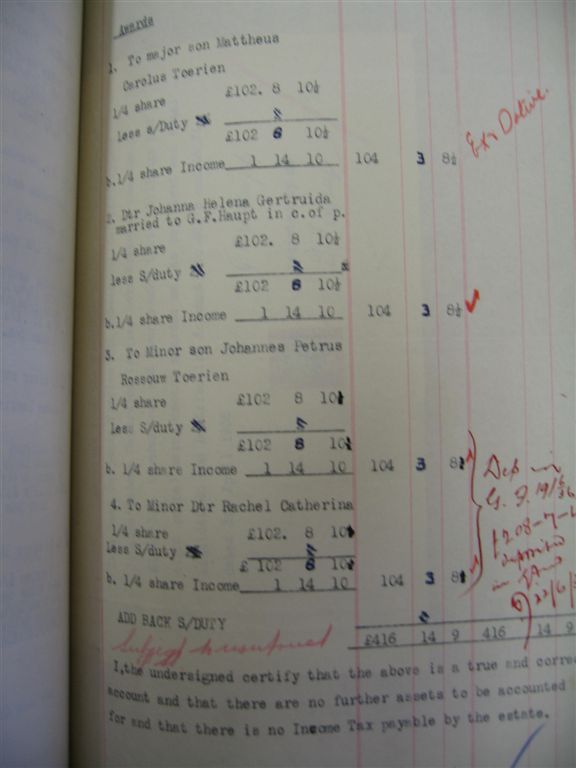 Awards
1. To major son Mattheus
Carolus Toerien
1/4 share £102. 8 10½
less s/Duty
£102 8 10½
b.1/4 share Income 1 14 10 104 3 8½
Exr Dative.
2. Dtr Johanna Helena Gertruida
married to G.F.Haupt in c.of p.
1/4 share £102. 8 10½
less S/duty
£102 8 10½
b.1/4 share Income 1 14 10 104 3 8½
3. To Minor son Johannes Petrus
Rossouw Toerien
1/4 share £102 8 10½
less S/duty
£102 8 10½
b. 1/4 share Income 1 14 10 104 3 8½
4. To Minor Dtr Rachel Catherina
1/4 share £102. 8 10½
Less S/duty
£ 102 8 10½
b. 1/4 share Income 1 14 10 104 3 8½
Dep in
G. F. 19/6/36
£208-7-
deposited
in
22/6/
ADD BACK S/DUTY
£416 14 9 416 14 9
I,the undersigned certify that the above is a true and corre
account and that there are no further assets to be accounted
for and that there is no Income Tax payable by the estate.